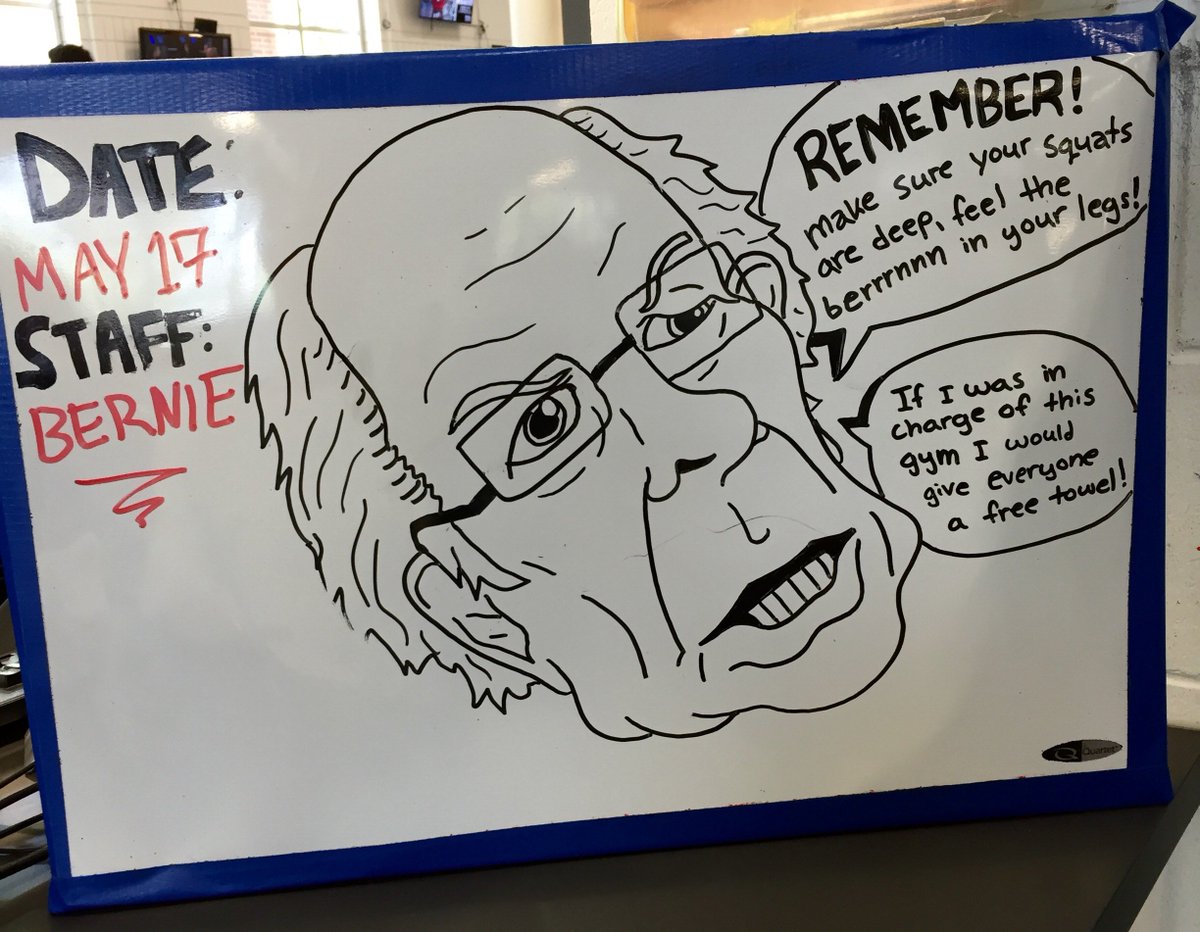 DATE:
MAY 17
STAFF:
BERNIE
REMEMBER!
make sure your squats
are deep, feel the
berrrnnnn in your legs!
If I was in
charge of this
gym I would
give everyone
a free towel!
Quartet